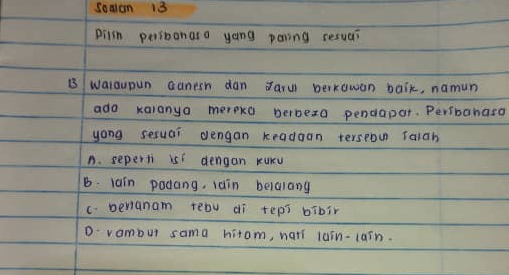 Soalan 13
Pilih peribahasa yang paling sesuai
13 Walaupun Ganesh dan Jarul berkawan baik, namun
ada kalanya mereka berbeza pendapat. Peribahasa
yang sesuai dengan keadaan tersebut ialah
A. seperti isi dengan kuku
B. lain padang, lain belalang
C. bertanam tebu di tepi bibir
D. rambut sama hitam, hati lain-lain.